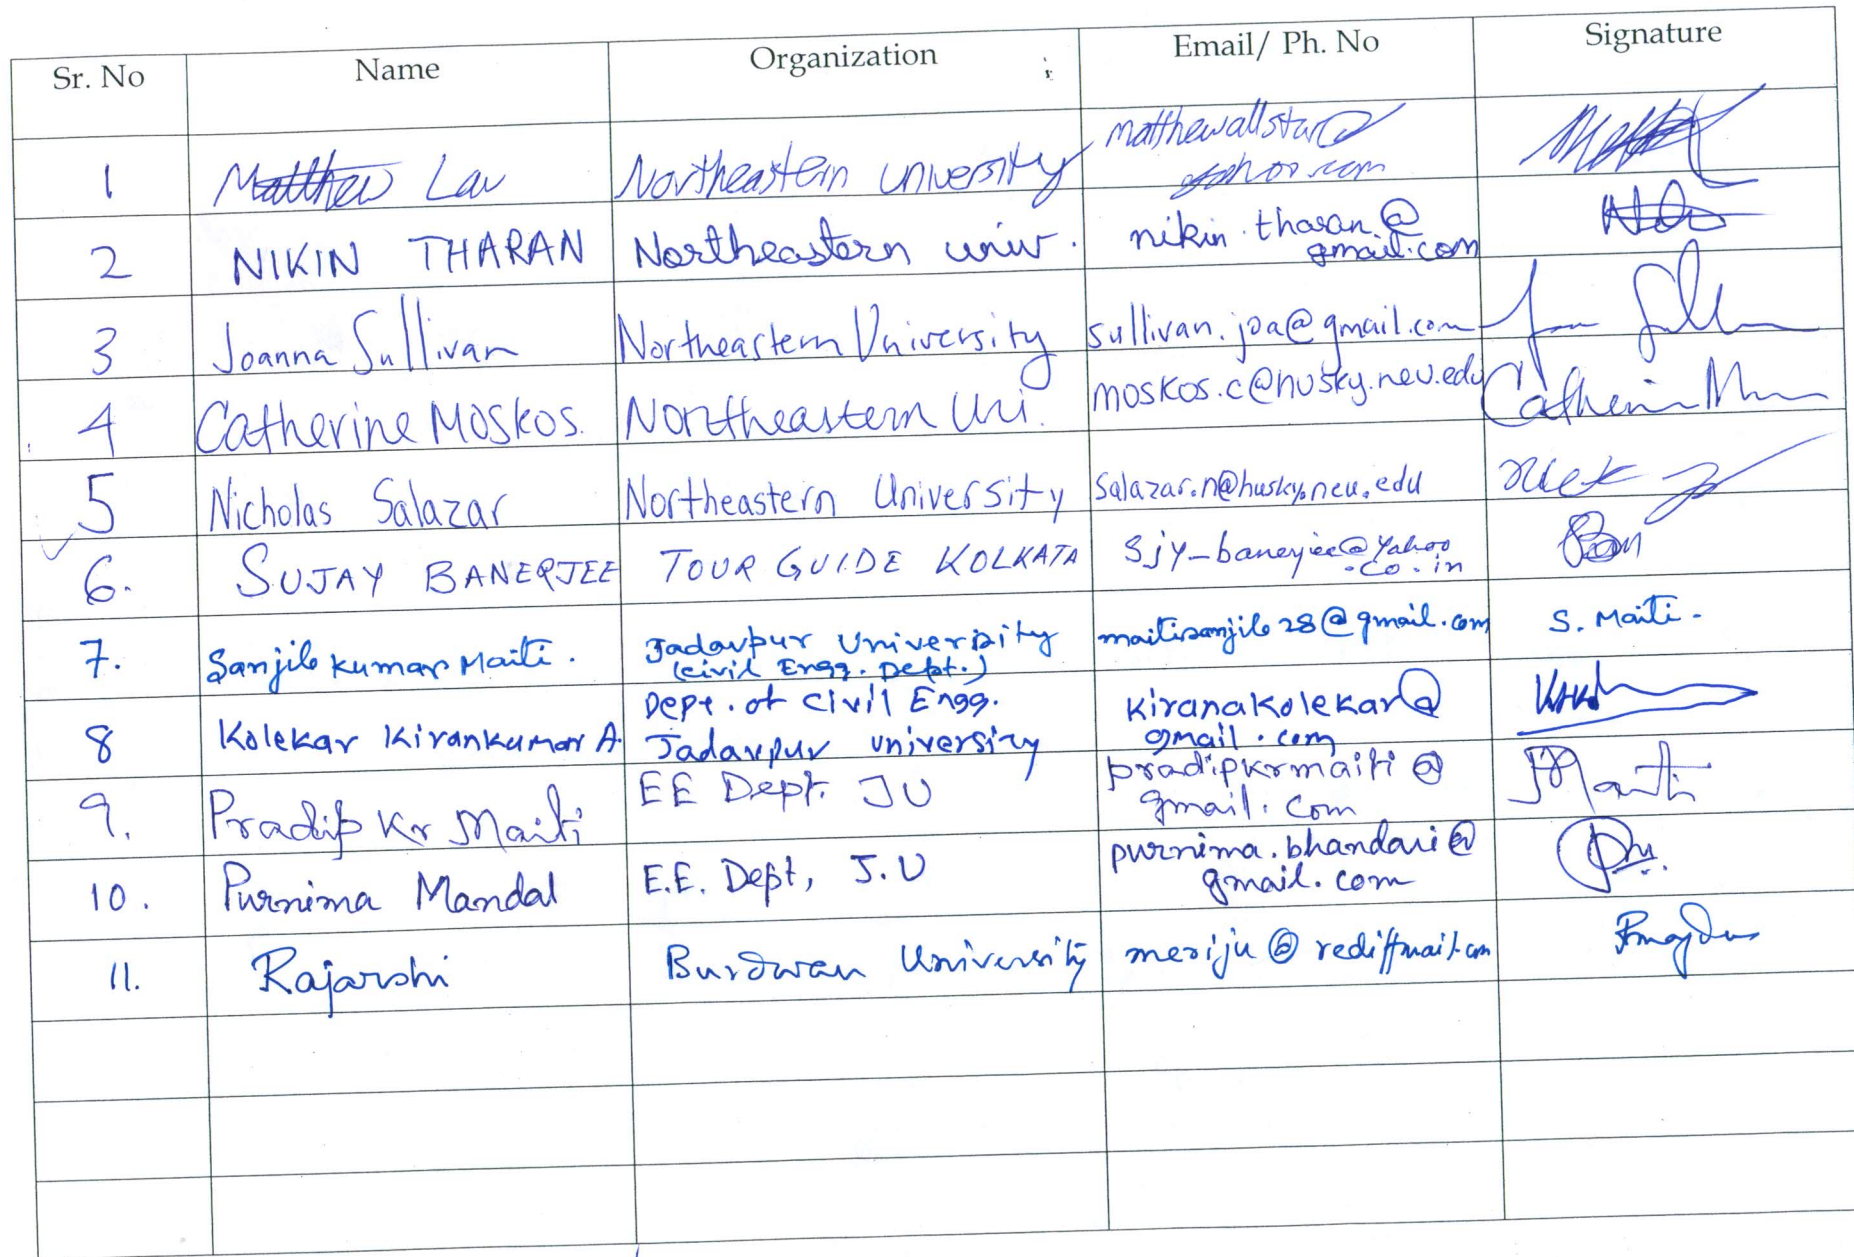 Sr. No Name Organization Email/ Ph. No Signature
1 Matthew Lau Northeastern University matthewallstar@
yahoo.com
2 NIKIN THARAN Northeastern univ. nikin.tharan@
gmail.com
3 Joanna Sullivan Northeastern University sullivan.joa@gmail.com
4 Catherine Moskos. Northeastern Uni. moskos.c@husky.neu.edu
5 Nicholas Salazar Northeastern University salazar.n@husky.neu.edu
6. SUJAY BANERJEE TOUR GUIDE KOLKATA sjy_banerjee@yahoo
.co.in
7. Sanjib kumar Maiti. Jadavpur University maitisanjib28@gmail.com S. Maiti.
(Civil Engg. Dept.)
Dept. of Civil Engg.
8 Kolekar Kirankumar A. Jadavpur University kiranakolekar@
gmail.com
9. Pradip Kr Maiti EE Dept. JU pradipkrmaiti@
gmail.com
10. Purnima Mandal E.E. Dept, J.U purnima.bhandari@
gmail.com
11. Rajarshi Burdwan University meriju@rediffmail.com